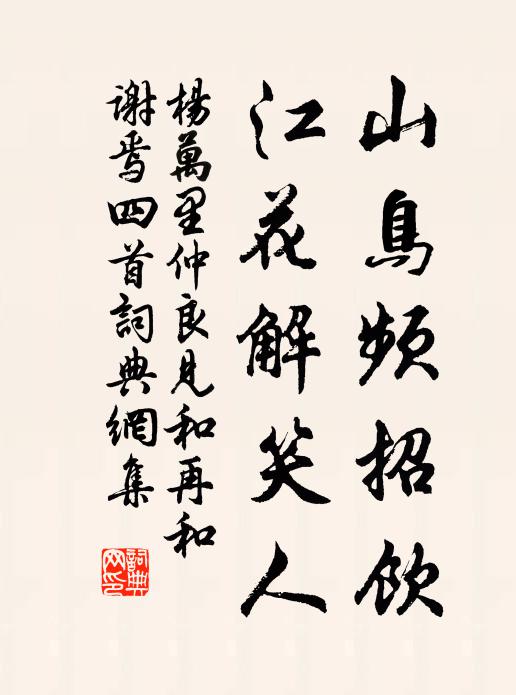 山鳥頻招飲
江花解笑人
楊萬里仲良見和再和
謝焉四首詞典網集
詞典網印